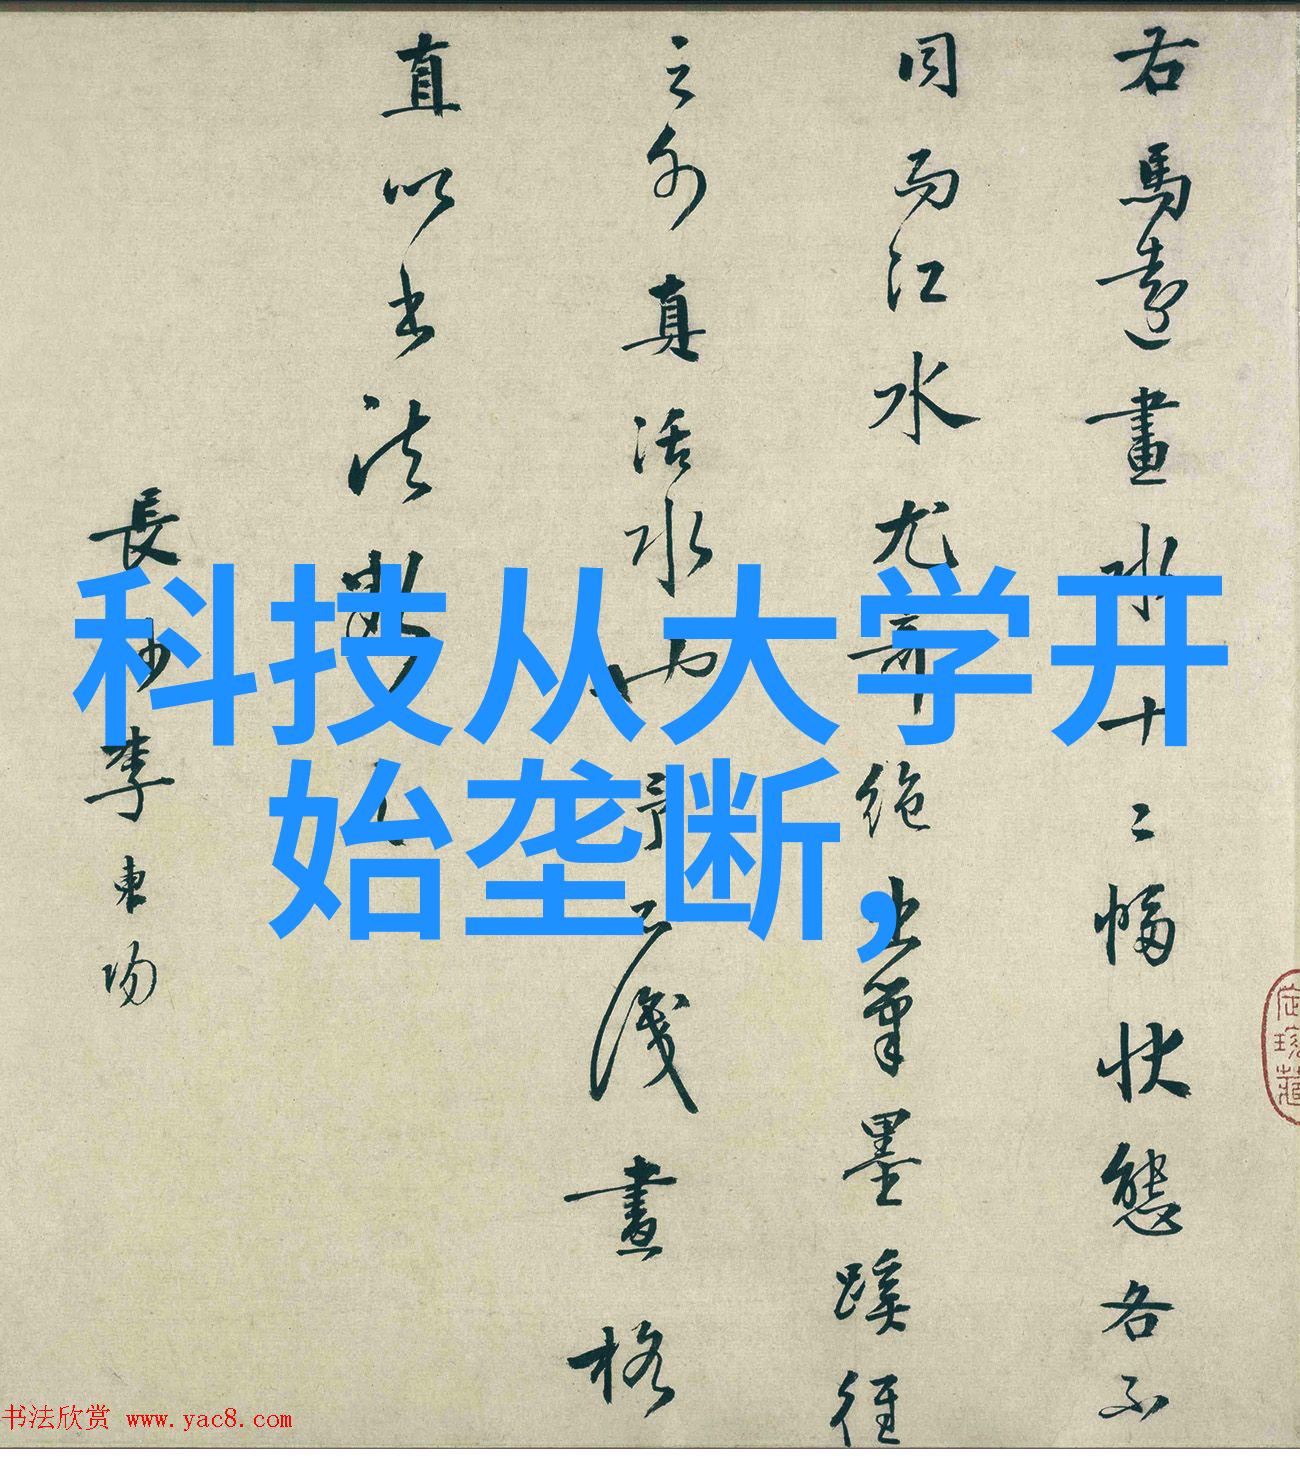 右馬遠畫水十二幅狀態各不
同而江水尤奇絕出筆墨蹊徑
之外真活水也予不識畫格
直以書法
長沙李東陽
科技从大学开
始垄断,
书法欣赏 www.yac8.com